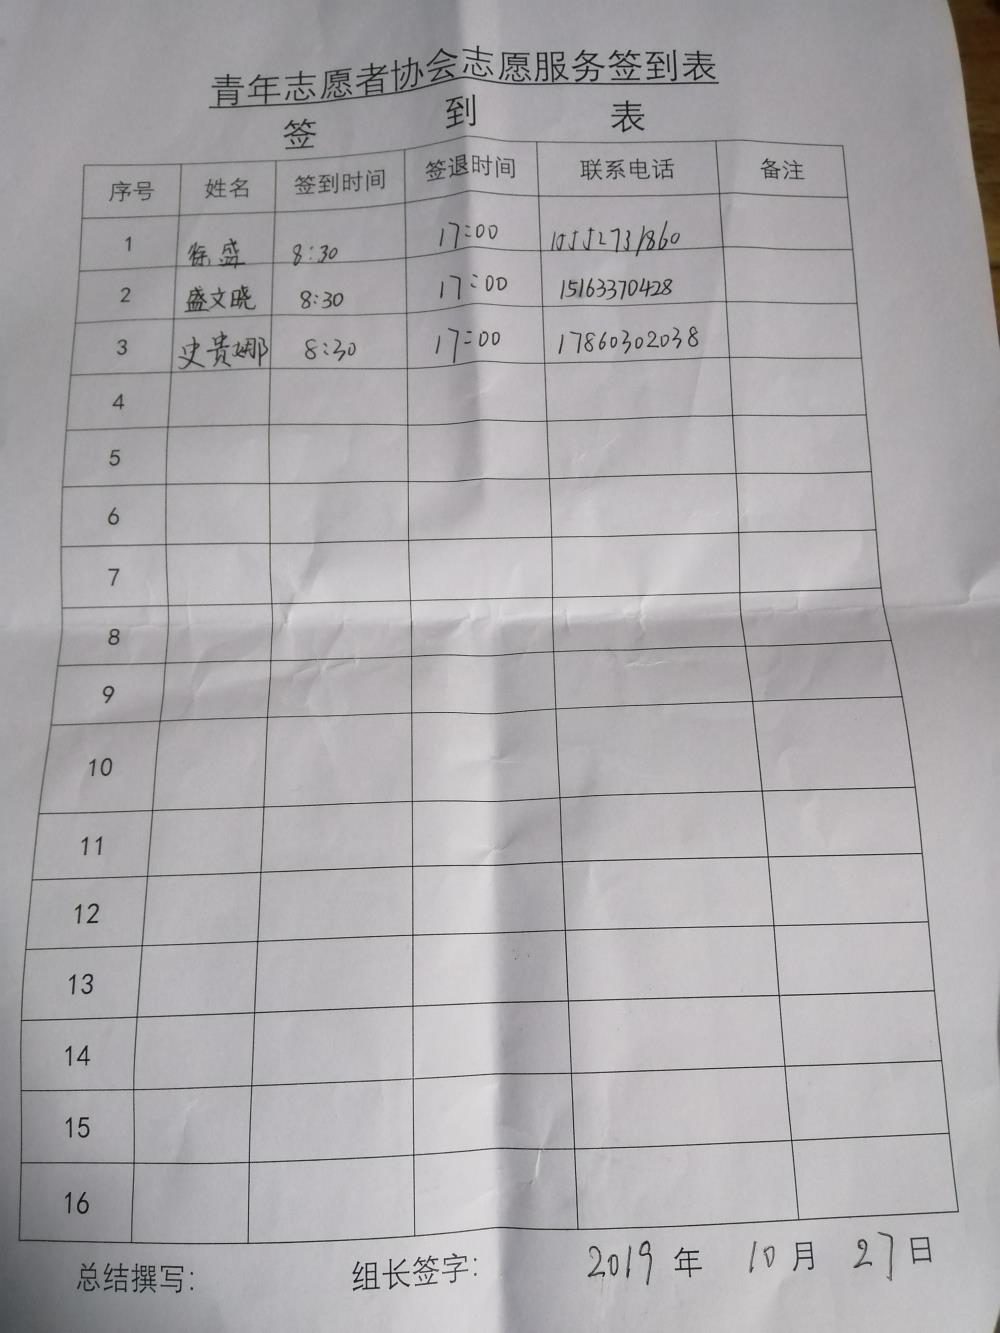 青年志愿者协会志愿服务签到表
签 到 表
序号 姓名 签到时间 签退时间 联系电话 备注
1 徐盛 8:30 17:00
2 盛文晓 8:30 17:00 15163370428
3 史贵娜 8:30 17:00 17860302038
4
5
6
7
8
9
10
11
12
13
14
15
16
总结撰写: 组长签字: 2019年 10月 27日